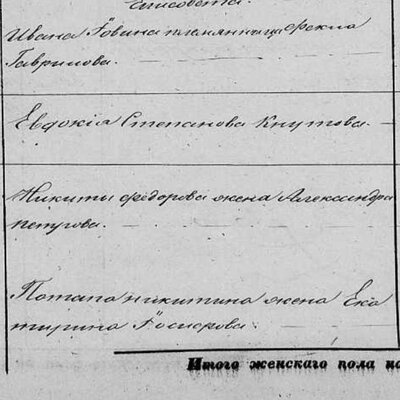 Елисовета.
Ивана племянница Фекла
Гаврилова.
Евдокія Степанова Кнутова
Никиты Федорова жена Александра
петрова.
Потапа никитина жена Ека
тирина
Итого женскаго пола на